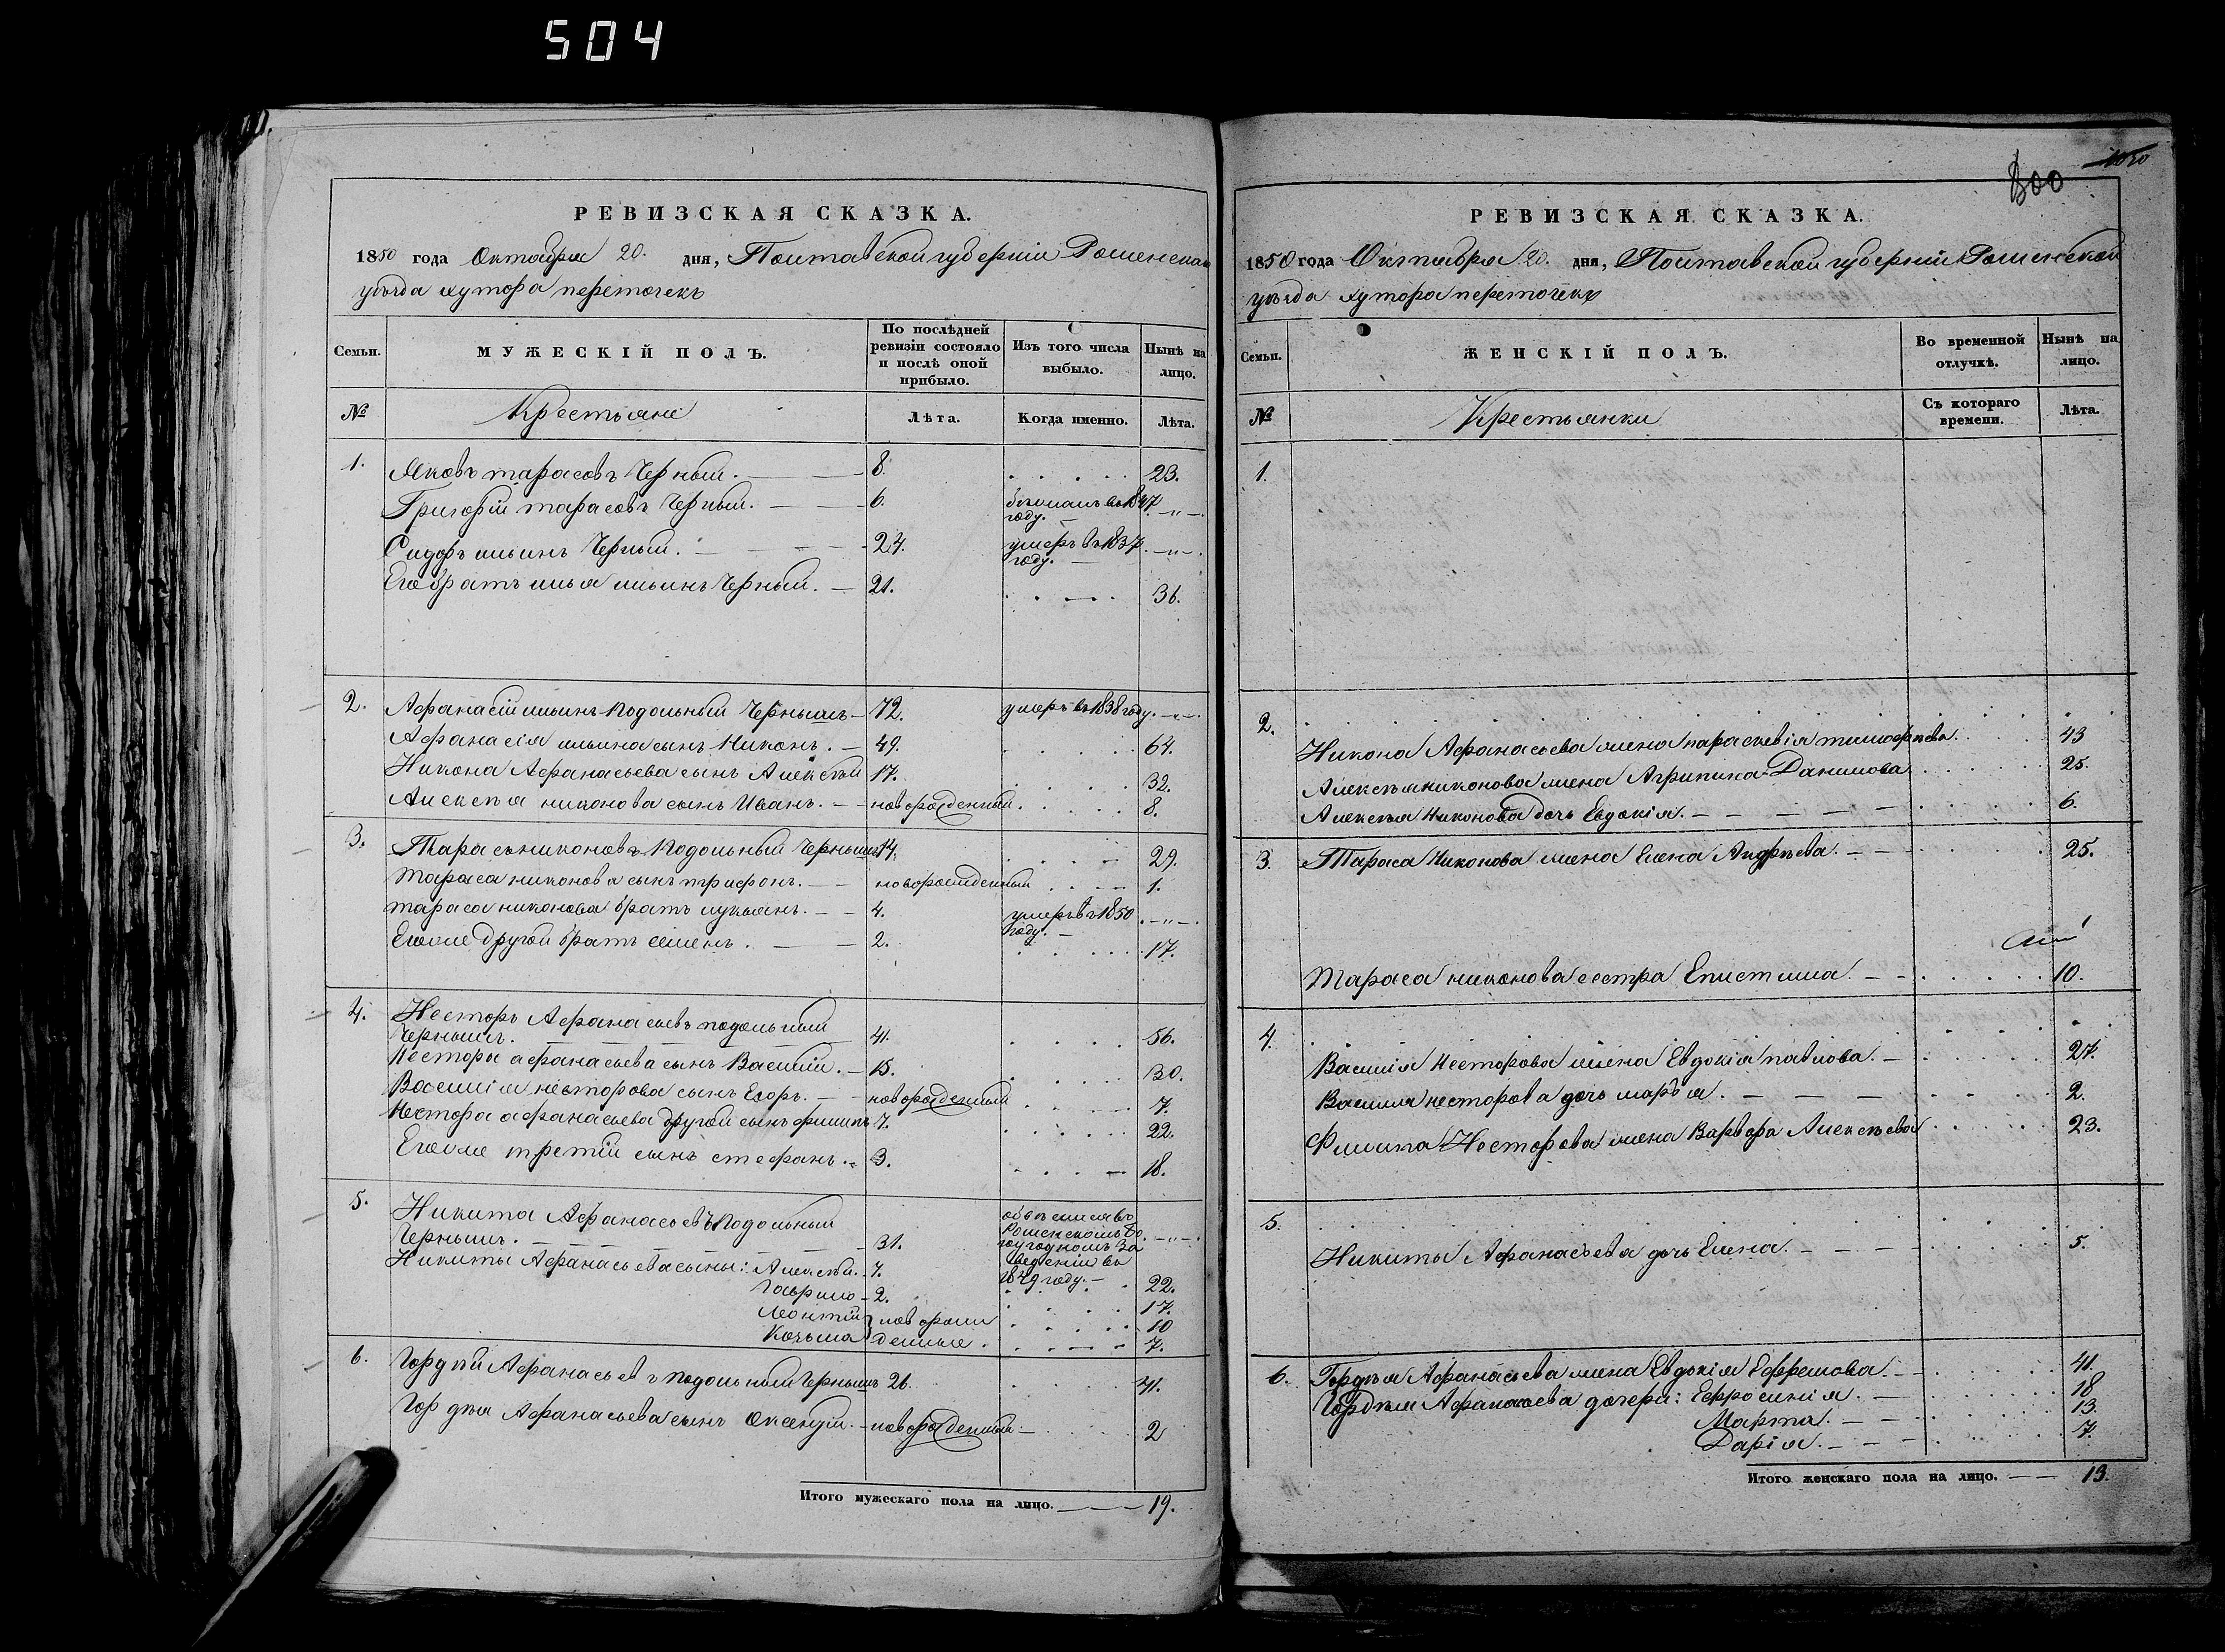 504
РЕВИЗСКАЯ СКАЗКА.
1850 года Октября 20. дня, Полтавской губерніи Роменскаго
уѣзда хутора перетечекъ
Семьи.
МУЖЕСКІЙ ПОЛЪ.
По послѣдней ревизіи состояло и послѣ оной прибыло.
Изъ того числа выбыло.
Нынѣ на лицо.
№
Крестьяне
Лѣта.
Когда именно.
Лѣта.
1. Яковъ тарасовъ Черный. 8. 23.
Григорій тарасовъ Черный. 6. 1847 году. -„-
Сидоръ ильинъ Черный. 24. умеръ въ 1837 году. -„-
Его братъ илья ильинъ Черный. 21. 36.
2. Афанасій ильинъ Подольный Чернышъ 72. умеръ въ 1838 году. -„-
Афанасія ильина сынъ Никонъ. 49. 64.
Никона Афанасьева сынъ Алексѣй 17. 32.
Алексѣя никонова сынъ Иванъ. новорожденный. 8.
3. Тарасъ никоновъ Подольный Чернышъ 14. 29.
Тараса никонова сынъ трифонъ. новорожденный 1.
тараса никонова братъ лукьянъ. 4. умеръ въ 1850 году. -„-
Егоже другой братъ семенъ. 2. 17.
4. Несторъ Афанасьевъ подольный
Чернышъ. 41. 56.
Нестора афанасьева сынъ Василій. 15. 30.
Василія несторова сынъ Егоръ. новорожденный 7.
Нестора афанасьева другой сынъ филипъ 7. 22.
Егоже третій сынъ стефанъ. 3. 18.
5. Никита Афанасьевъ Подольный
Чернышъ. 31. въ Роменскомъ богоугодномъ заведеніи въ 1849 году. -„-
Никиты Афанасьева сыны: Алексѣй. 7. 22.
Гаврило 2. 17.
Леонтій } новорож 10
Козьма } денные. 7.
6. Гордѣй Афанасьевъ Подольный Чернышъ 26. 41.
Гордѣя Афанасьева сынъ Оксентій. новорожденный 2
Итого мужескаго пола на лицо. 19.
1050
800
РЕВИЗСКАЯ СКАЗКА.
1850 года Октября 20. дня, Полтавской губерніи Роменской
уѣзда хутора перетечекъ
Семьи.
ЖЕНСКІЙ ПОЛЪ.
Во временной отлучкѣ.
Нынѣ на лицо.
№
Крестьянки
Съ котораго времени.
Лѣта.
1.
2.
Никона Афанасьева жена параскевія тимофѣева. 43
Алексѣя никонова жена Агрипина Данилова. 25.
Алексѣя Никонова дочь Евдокія. 6.
3. Тараса Никонова жена Елена Андрѣева. 25.
Тараса никонова сестра Епистима. 10.
4.
Василія Несторова жена Евдокія павлова. 27.
Василия несторова дочь марья. 2.
Филипа Несторова жена Варвара Алексѣева 23.
5.
Никиты Афанасьева дочь Елена. 5.
6. Гордѣя Афанасьева жена Евдокія Ефремова. 41.
Гордѣя Афанасьева дочери: Ефросинія. 18
Марта. 13.
Дарія. 7.
Итого женскаго пола на лицо. 13.